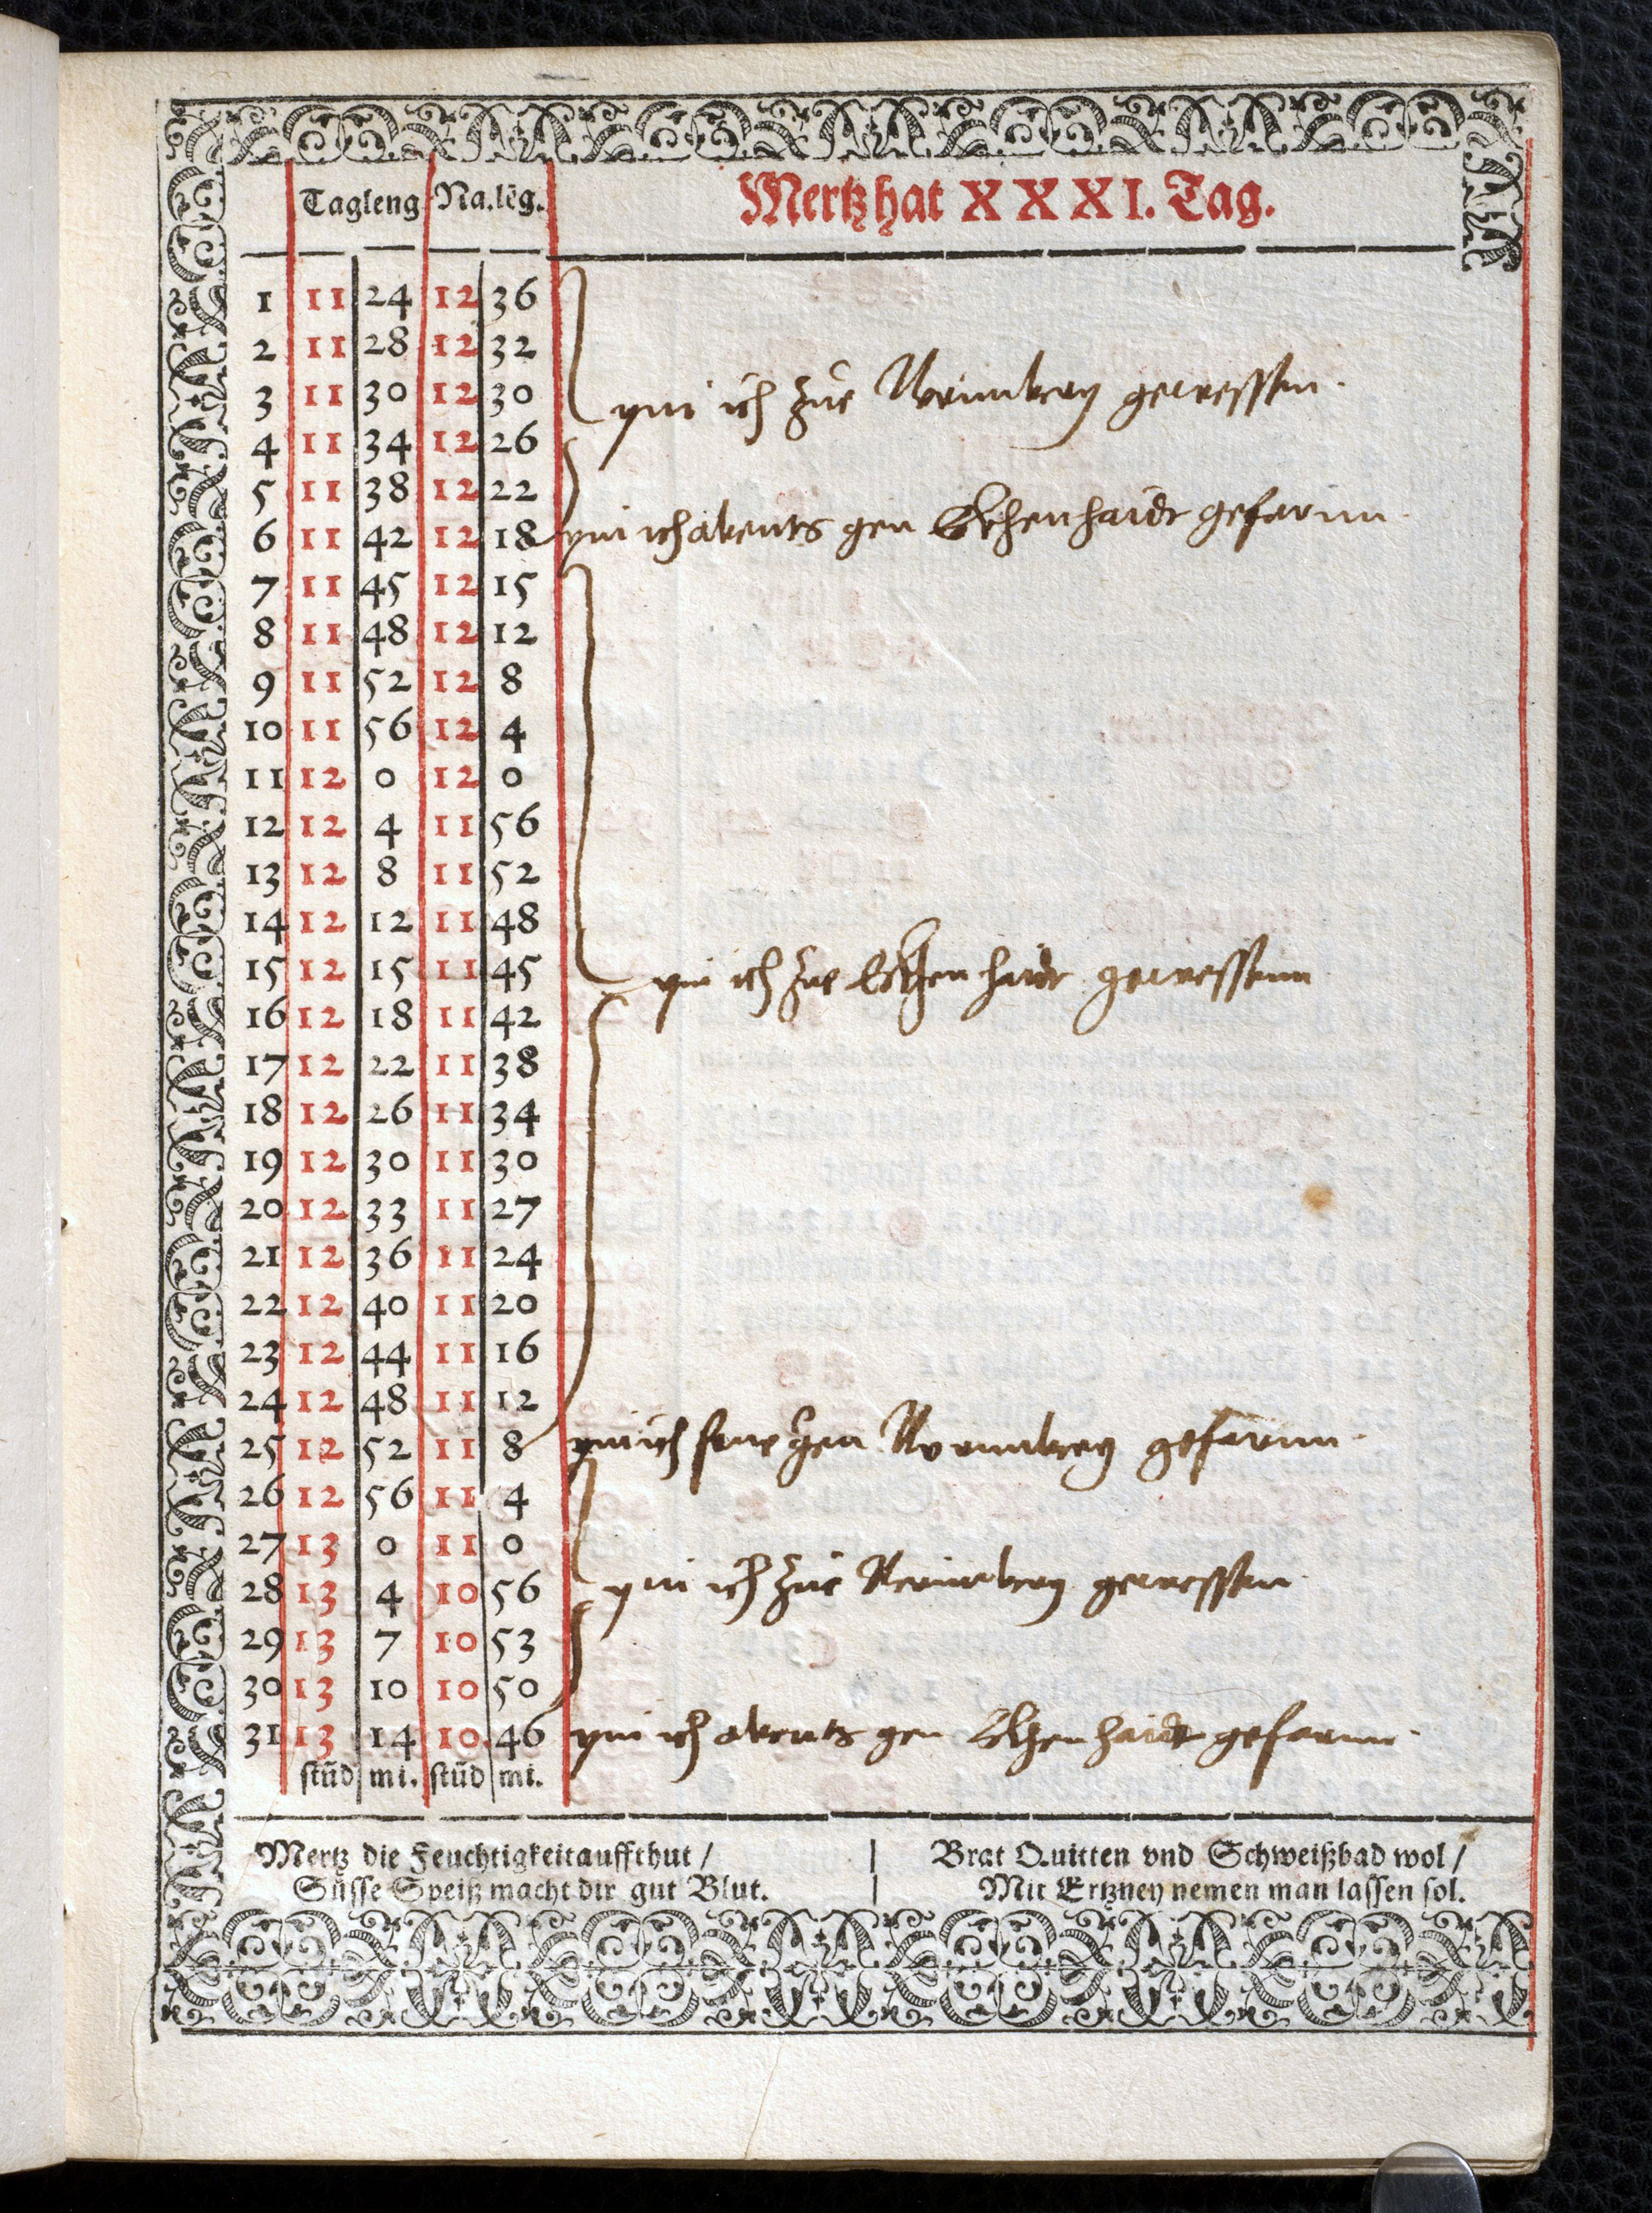 Tagleng Na.lēg. Mertz hat XXXI. Tag.
1 11 24 12 36
2 11 28 12 32
3 11 30 12 30 pin ich zue Nornnberg gewessen.
4 11 34 12 26
5 11 38 12 22
6 11 42 12 18 pin ich abents gen Eschenhaidt gefarnn
7 11 45 12 15
8 11 48 12 12
9 11 52 12 8
10 11 56 12 4
11 12 0 12 0
12 12 4 11 56
13 12 8 11 52
14 12 12 11 48
15 12 15 11 45 pin ich zue gewessenn
16 12 18 11 42
17 12 22 11 38
18 12 26 11 34
19 12 30 11 30
20 12 33 11 27
21 12 36 11 24
22 12 40 11 20
23 12 44 11 16
24 12 48 11 12
25 12 52 11 8 pin ich frue gen Nornnberg gefarnn.
26 12 56 11 4
27 13 0 11 0
28 13 4 10 56 pin ich zue Nornnberg gewessen.
29 13 7 10 53
30 13 10 10 50
31 13 14 10 46 pin ich abents gen gefarnn.
stūd mi. stūd mi.
Mertz die Feuchtigkeit auffthut /
Süsse Speiß macht dir gut Blut.
Brat Quitten vnd Schweißbad wol /
Mit Ertzney nemen man lassen sol.